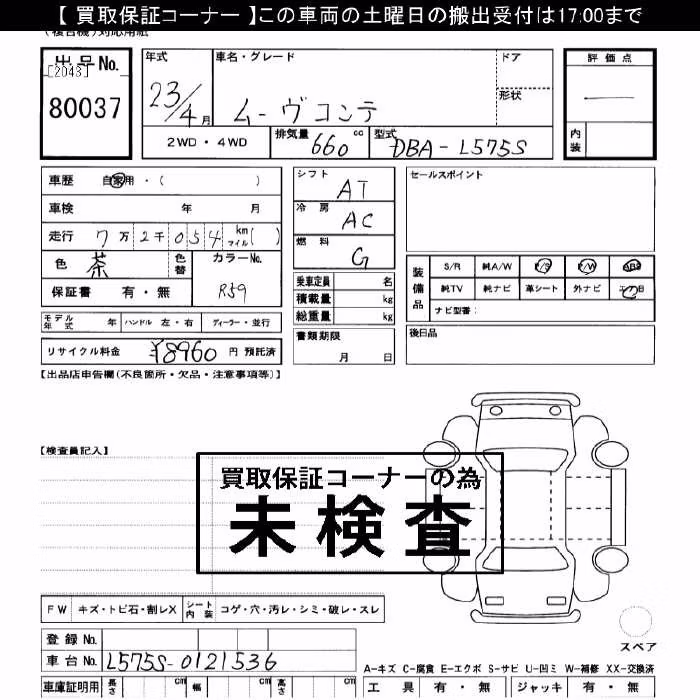 【 買取保証コーナー 】この車両の土曜日の搬出受付は17:00まで
(複合機)対応用紙
出品No.
[2043]
80037
年式 車名・グレード ドア
23/4月 ムーヴコンテ 形状
2WD・4WD 排気量 660 cc 型式 DBA-L575S
評価点
—
内装
車歴 自家用・( )
車検 年 月
走行 7万2千054 km マイル( )
色 茶 色替 カラーNo.
保証書 有・無 R59
モデル年式 年 ハンドル 左・右 ディーラー・並行
リサイクル料金 ¥8960 円 預託済
シフト AT
冷房 AC
燃料 G
乗車定員 名
積載量 kg
総重量 kg
書類期限
月 日
セールスポイント
装備品 S/R 純A/W P/S P/W ABS
純TV 純ナビ 革シート 外ナビ エアB
ナビ型番:
後日品
【出品店申告欄(不良箇所・欠品・注意事項等)】
【検査員記入】
買取保証コーナーの為
未検査
FW キズ・トビ石・割レX シート内装 コゲ・穴・汚レ・シミ・破レ・スレ
スペア
登録No.
車台No. L575S-0121536
車庫証明用 長さ cm 幅 cm 高さ cm
A-キズ C-腐食 E-エクボ S-サビ U-凹ミ W-補修 XX-交換済
工具 有・無 ジャッキ 有・無